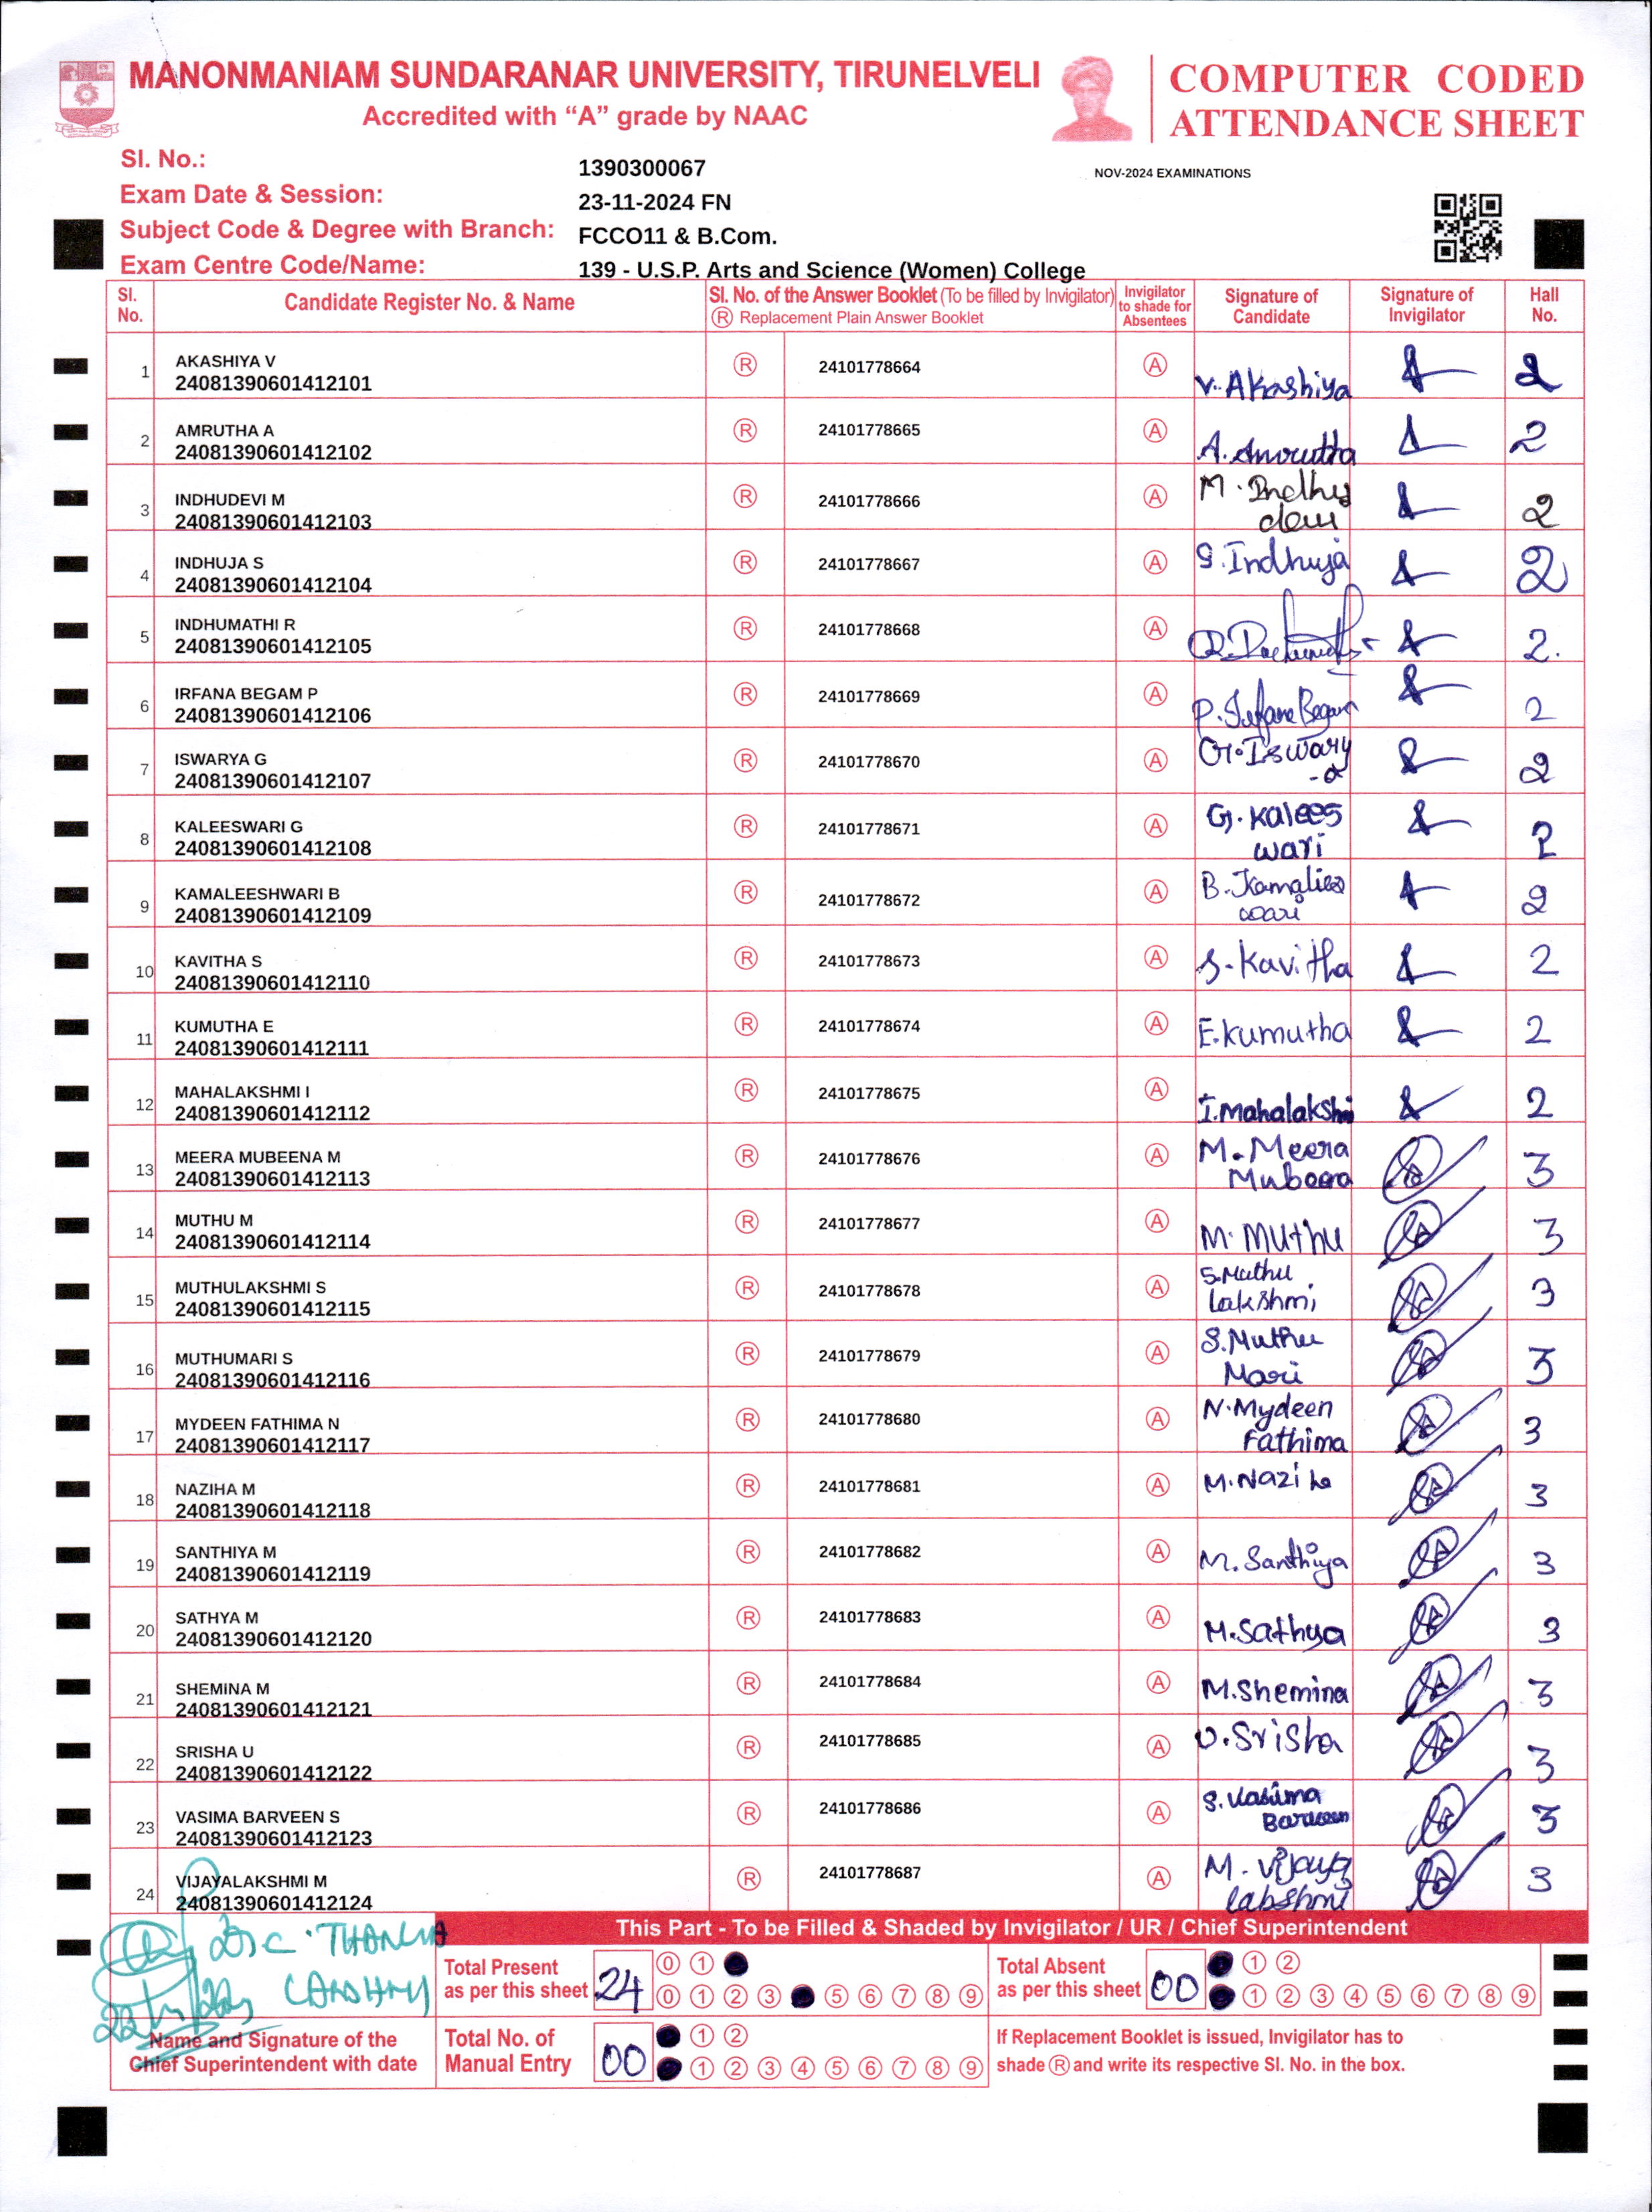 MANONMANIAM SUNDARANAR UNIVERSITY, TIRUNELVELI
Accredited with “A” grade by NAAC
COMPUTER CODED
ATTENDANCE SHEET
Sl. No.: 1390300067
NOV-2024 EXAMINATIONS
Exam Date & Session: 23-11-2024 FN
Subject Code & Degree with Branch: FCCO11 & B.Com.
Exam Centre Code/Name: 139 - U.S.P. Arts and Science (Women) College
Sl. No. Candidate Register No. & Name Sl. No. of the Answer Booklet (To be filled by Invigilator) Ⓡ Replacement Plain Answer Booklet Invigilator to shade for Absentees Signature of Candidate Signature of Invigilator Hall No.
1 AKASHIYA V 24081390601412101 Ⓡ 24101778664 Ⓐ V. Akashiya 2
2 AMRUTHA A 24081390601412102 Ⓡ 24101778665 Ⓐ A. Amrutha 2
3 INDHUDEVI M 24081390601412103 Ⓡ 24101778666 Ⓐ M. Indhu devi 2
4 INDHUJA S 24081390601412104 Ⓡ 24101778667 Ⓐ S. Indhuja 2
5 INDHUMATHI R 24081390601412105 Ⓡ 24101778668 Ⓐ 2.
6 IRFANA BEGAM P 24081390601412106 Ⓡ 24101778669 Ⓐ P. Irfana Begam 2
7 ISWARYA G 24081390601412107 Ⓡ 24101778670 Ⓐ G. Iswary -a 2
8 KALEESWARI G 24081390601412108 Ⓡ 24101778671 Ⓐ G. Kalees wari 2
9 KAMALEESHWARI B 24081390601412109 Ⓡ 24101778672 Ⓐ B. 2
10 KAVITHA S 24081390601412110 Ⓡ 24101778673 Ⓐ S. Kavitha 2
11 KUMUTHA E 24081390601412111 Ⓡ 24101778674 Ⓐ E. kumutha 2
12 MAHALAKSHMI I 24081390601412112 Ⓡ 24101778675 Ⓐ I. Mahalakshmi 2
13 MEERA MUBEENA M 24081390601412113 Ⓡ 24101778676 Ⓐ M. Meera 3
14 MUTHU M 24081390601412114 Ⓡ 24101778677 Ⓐ M. Muthu 3
15 MUTHULAKSHMI S 24081390601412115 Ⓡ 24101778678 Ⓐ S. Muthu lakshmi 3
16 MUTHUMARI S 24081390601412116 Ⓡ 24101778679 Ⓐ S. Muthu Mari 3
17 MYDEEN FATHIMA N 24081390601412117 Ⓡ 24101778680 Ⓐ N. Mydeen Fathima 3
18 NAZIHA M 24081390601412118 Ⓡ 24101778681 Ⓐ M. Naziha 3
19 SANTHIYA M 24081390601412119 Ⓡ 24101778682 Ⓐ M. Santhiya 3
20 SATHYA M 24081390601412120 Ⓡ 24101778683 Ⓐ M. Sathya 3
21 SHEMINA M 24081390601412121 Ⓡ 24101778684 Ⓐ M. Shemina 3
22 SRISHA U 24081390601412122 Ⓡ 24101778685 Ⓐ U. Srisha 3
23 VASIMA BARVEEN S 24081390601412123 Ⓡ 24101778686 Ⓐ S. Vasima Barveen 3
24 VIJAYALAKSHMI M 24081390601412124 Ⓡ 24101778687 Ⓐ M. Vijaya lakshmi 3
This Part - To be Filled & Shaded by Invigilator / UR / Chief Superintendent
Total Present as per this sheet 24
0 1
0 1 2 3 5 6 7 8 9
Total Absent as per this sheet 00
1 2
1 2 3 4 5 6 7 8 9
Name and Signature of the
Chief Superintendent with date
Total No. of Manual Entry 00
1 2
1 2 3 4 5 6 7 8 9
If Replacement Booklet is issued, Invigilator has to
shade Ⓡ and write its respective Sl. No. in the box.